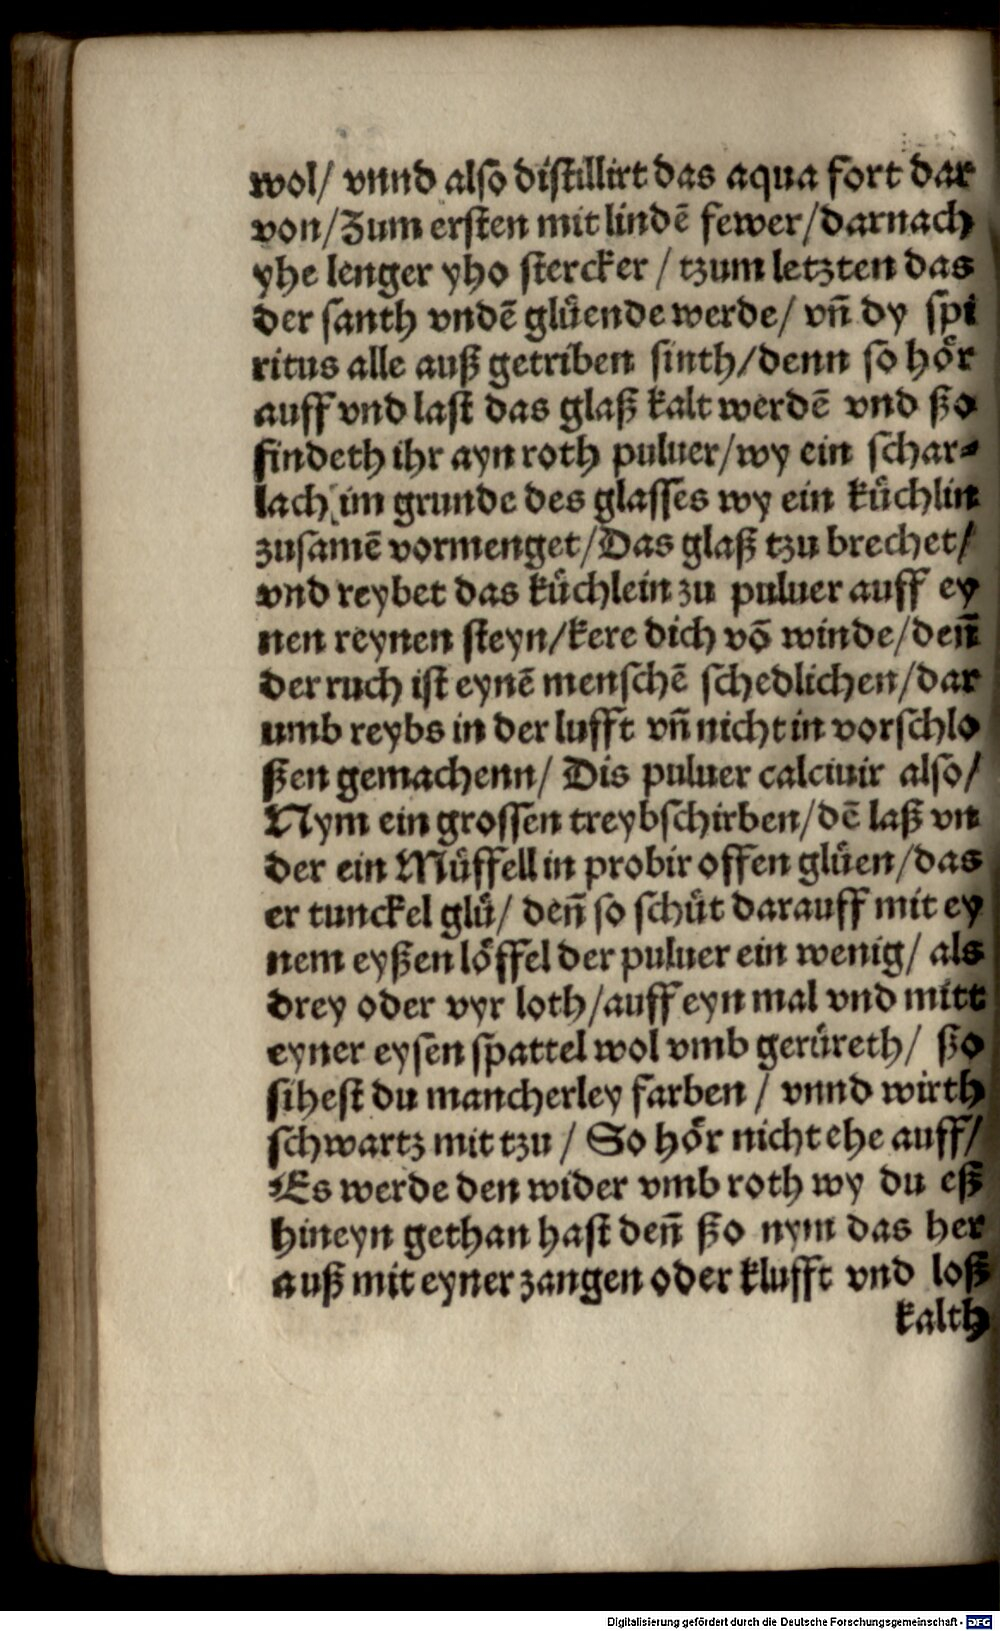 wol/ vnnd also distillirt das aqua fort dar
von/Zum ersten mit lindē fewer/darnach
yhe lenger yho stercker / tzum letzten das
der santh vndē glüende werde/ vn̄ dy spi
ritus alle auß getriben sinth/denn so hör
auff vnd last das glaß kalt werdē vnd ßo
findeth ihr ayn roth puluer/wy ein schar-
lach im grunde des glasses wy ein küchlin
zusamē vormenget/Das glaß tzu brechet/
vnd reybet das küchlein zu puluer auff ey
nen reynen steyn/kere dich vō winde/den̄
der ruch ist eynē menschē schedlichen/dar
umb reybs in der lufft vn̄ nicht in vorschlo
ßen gemachenn/ Dis puluer calciuir also/
Nym ein grossen treybschirben/dē laß vn
der ein Müffell in probir offen glüen/das
er tunckel glü/ den̄ so schüt darauff mit ey
nem eyßen löffel der puluer ein wenig/ als
drey oder vyr loth/auff eyn mal vnd mitt
eyner eysen spattel wol vmb gerüreth/ ßo
sihest du mancherley farben / vnnd wirth
schwartz mit tzu / So hör nicht ehe auff/
Es werde den wider vmb roth wy du eß
hineyn gethan hast den̄ ßo nym das her
auß mit eyner zangen oder klufft vnd loß
kalth
Digitalisierung gefördert durch die Deutsche Forschungsgemeinschaft - DFG